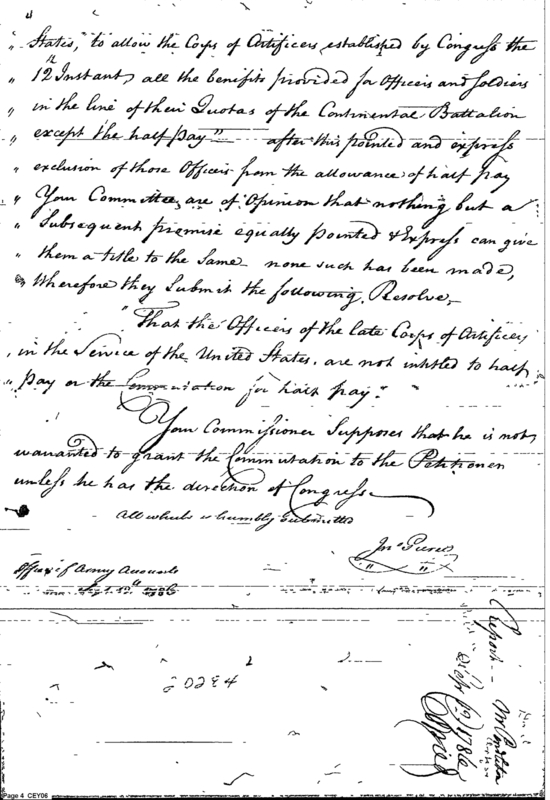 " States, to allow the Corps of Artificers established by Congress the
" 12th Instant, all the benifits provided for Officers and Soldiers
" in the line of their Quotas of the Continental Battalion
" except the half Pay" after this pointed and express
" exclusion of those Officers from the allowance of half pay
" Your Committee are of Opinion that nothing but a
" Subsequent promise equally pointed & Express can give
" them a title to the Same none such has been made,
Wherefore they Submit the following Resolve,
" That the Officers of the late Corps of Artificers
" in the Service of the United States, are not intitled to half
" Pay or the Commutation for half pay."
Your Commissioner Supposes that he is not
warranted to grant the Commutation to the Petitioner
unless he has the direction of Congress
All which is humbly Submitted
Jno Pierce
Office of Army Accounts
Report
1786
Page 4 CEY06